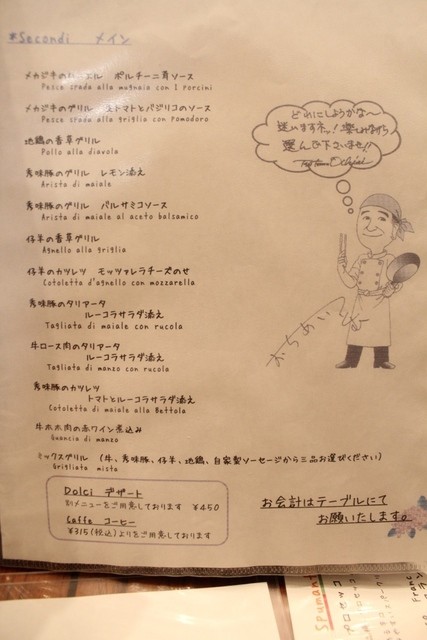 *Secondi　メイン
メカジキのムニエル　ポルチーニ茸ソース
Pesce spada alla mugnaia con i Porcini
メカジキのグリル　生トマトとバジリコのソース
Pesce spada alla griglia con Pomodoro
地鶏の香草グリル
Pollo alla diavola
秀味豚のグリル　レモン添え
Arista di maiale
秀味豚のグリル　バルサミコソース
Arista di maiale al aceto balsamico
仔羊の香草グリル
Agnello alla griglia
仔羊のカツレツ　モッツァレラチーズのせ
Cotoletta d'agnello con mozzarella
秀味豚のタリアータ
ルーコラサラダ添え
Tagliata di maiale con rucola
牛ロース肉のタリアータ
ルーコラサラダ添え
Tagliata di manzo con rucola
秀味豚のカツレツ
トマトとルーコラサラダ添え
Cotoletta di maiale alla Bettola
牛ホホ肉の赤ワイン煮込み
Guancia di manzo
ミックスグリル　(牛、秀味豚、仔羊、地鶏、自家製ソーセージから三品お選びください)
Grigliata mista
どれにしようかな〜
迷いますネッ!楽しみながら
選んで下さいませ!!
Dolci デザート
別メニューをご用意しております　¥450
Caffe コーヒー
¥315(税込)よりをご用意しております
お会計はテーブルにて
お願いたします。
Spuman